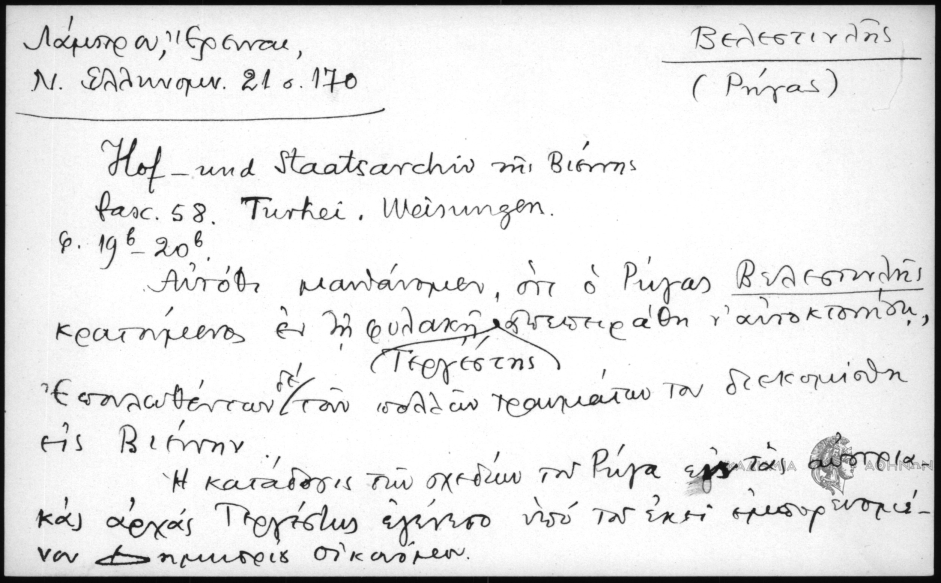 Λάμπρου, Ἔρευναι,
Ν. Ἑλληνομν. 21 σ. 170
Βελεστινλῆς
(Ρήγας)
Hof- und Staatsarchiv τῆς Βιέννης
fasc. 58. Turkei. Weisungen.
φ. 19β-20β
Αὐτόθι μανθάνομεν, ὅτι ὁ Ρήγας Βελεστινλῆς
κρατούμενος ἐν τῇ φυλακῇ ἀπεπειράθη ν' αὐτοκτονήσῃ,
(Τεργέστης)
Ἐπουλωθέντων δὲ τῶν πολλῶν τραυμάτων του διεκομίσθη
εἰς Βιέννην.
Ἡ κατάδοσις τῶν σχεδίων τοῦ Ρήγα εἰς τὰς αὐστρια-
κὰς ἀρχὰς Τεργέστης ἐγένετο ὑπὸ τοῦ ἐκεῖ ἐμπορευομέ-
νου Δημητρίου Οἰκονόμου.
ΑΚΑΔΗΜΙΑ ΑΘΗΝΩΝ